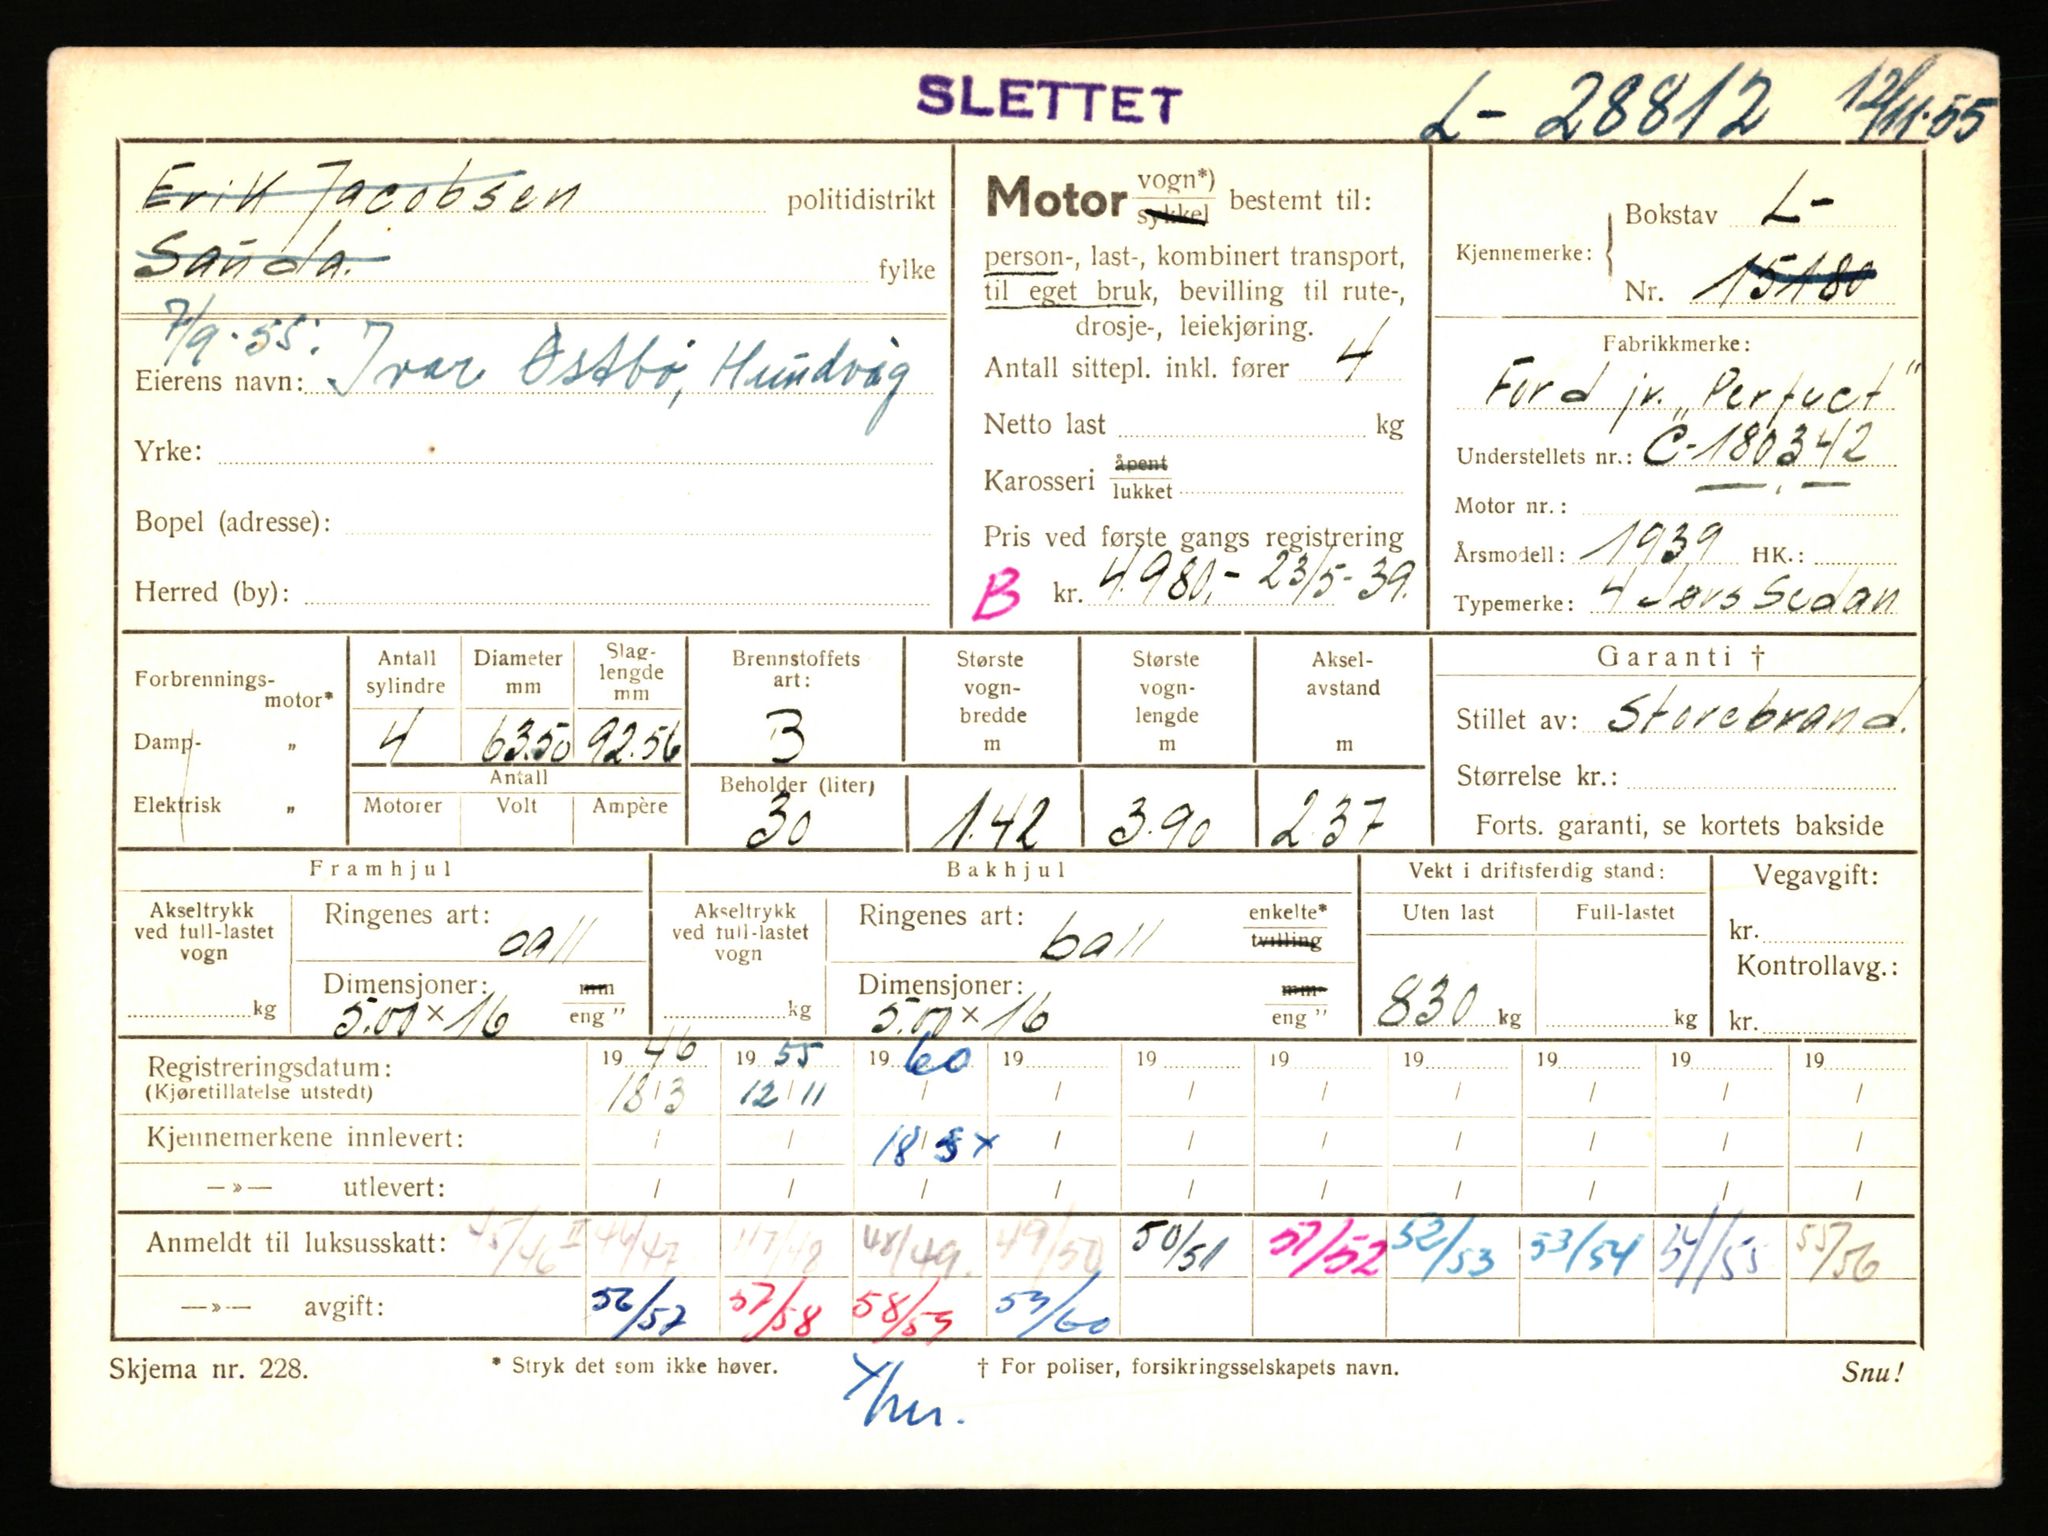 SLETTET L- 28812 12/11-55
Erik Jacobsen politidistrikt
Sanda. fylke
7/9-55:
Eierens navn: Ivar Østbø, Hundvåg
Yrke:
Bopel (adresse):
Herred (by):
Motor vogn*) sykkel bestemt til:
person-, last-, kombinert transport,
til eget bruk, bevilling til rute-,
drosje-, leiekjøring.
Antall sittepl. inkl. fører 4
Netto last kg
Karosseri åpent lukket
Pris ved første gangs registrering
B kr. 4.980,- 23/5-39.
Kjennemerke: Bokstav L-
Nr. 15180
Fabrikkmerke:
Ford jr. „Perfect"
Understellets nr.: C-180342
Motor nr.:
Årsmodell: 1939 HK.:
Typemerke: 4 dørs Sedan
Forbrenningsmotor*
Damp- „
Elektrisk „
Antall sylindre Diameter mm Slaglengde mm
4 63.50 92.56
Antall
Motorer Volt Ampère
Brennstoffets art:
B
Beholder (liter)
30
Største vognbredde m
1.42
Største vognlengde m
3.90
Akselavstand m
2.37
Garanti †
Stillet av: Storebrand.
Størrelse kr.:
Forts. garanti, se kortets bakside
Framhjul
Akseltrykk ved full-lastet vogn
kg
Ringenes art: ball
Dimensjoner: mm
5.00 x 16 eng "
Bakhjul
Akseltrykk ved full-lastet vogn
kg
Ringenes art: ball enkelte* tvilling
Dimensjoner: mm
5.00 x 16 eng "
Vekt i driftsferdig stand:
Uten last Full-lastet
830 kg kg
Vegavgift:
kr.
Kontrollavg.:
kr.
Registreringsdatum: 1946 1955 1960 19 19 19 19 19 19 19
(Kjøretillatelse utstedt) 18/3 12/11 / / / / / / / /
Kjennemerkene innlevert: / / 18/5 x / / / / / / /
—»— utlevert: / / / / / / / / / /
Anmeldt til luksusskatt: 45/46 II 46/47 47/48 48/49. 49/50 50/51 51/52 52/53 53/54 54/55 55/56
—»— avgift: 56/57 57/58 58/59 59/60
Skjema nr. 228. * Stryk det som ikke høver. † For poliser, forsikringsselskapets navn. Snu!